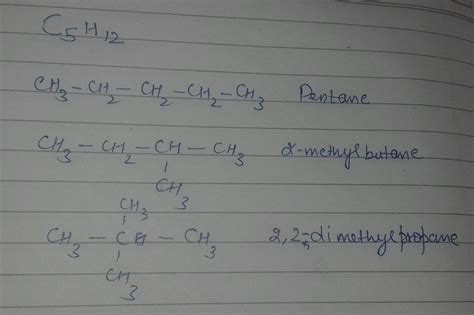 C5H12
CH3-CH2-CH2-CH2-CH3 Pentane
CH3-CH2-CH-CH3 2-methylbutane
CH3
CH3
CH3-C-CH3 2,2-dimethylpropane
CH3